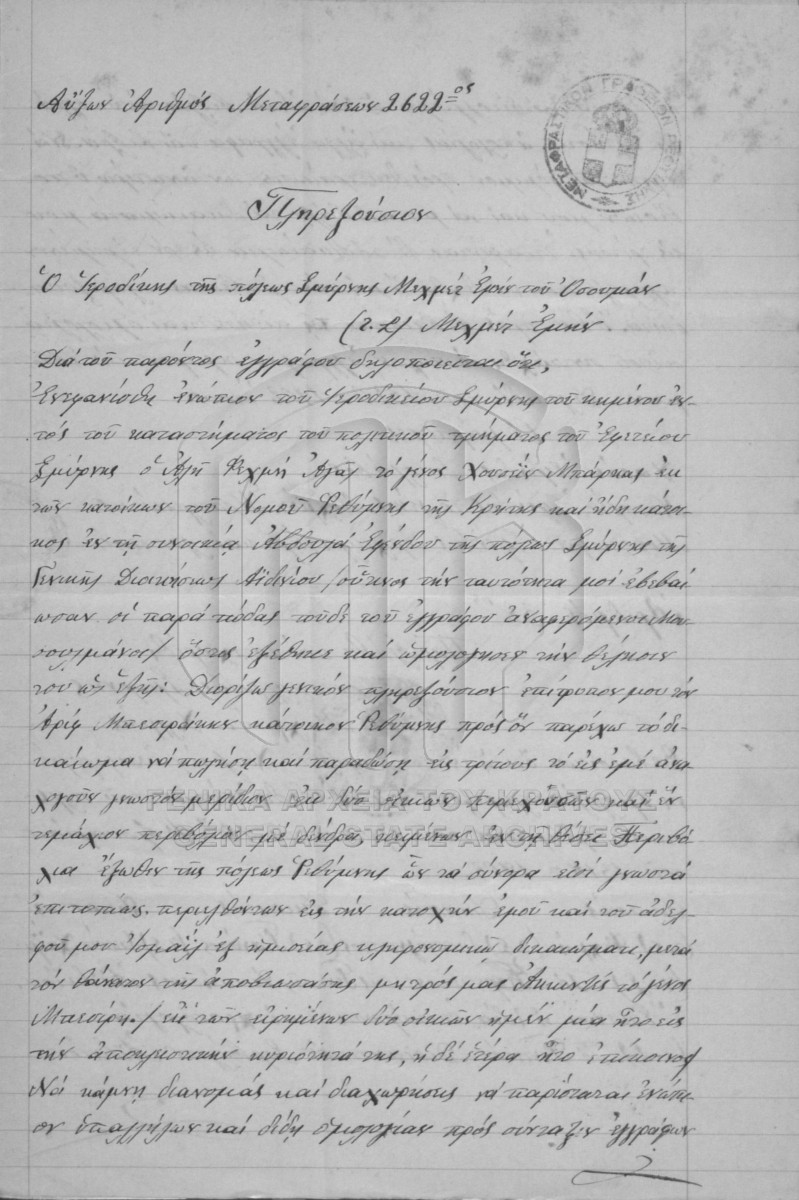 Αὔξων Ἀριθμός Μεταφράσεων 2622ος
ΜΕΤΑΦΡΑΣΤΙΚΟΝ ΓΡΑΦΕΙΟΝ ΡΕΘΥΜΝΗΣ
Πληρεξούσιον
Ὁ Ἱεροδίκης τῆς πόλεως Σμύρνης Μεχμέτ Ἐμίν τοῦ Ὀσουμάν
(τ.σ) Μεχμέτ Ἐμήν.
Διά τοῦ παρόντος ἐγγράφου δηλοποιεῖται ὅτι,
Ἐνεφανίσθη ἐνώπιον τοῦ Ἱεροδικείου Σμύρνης τοῦ κειμένου ἐν-
τός τοῦ καταστήματος τοῦ πολιτικοῦ τμήματος τοῦ Ἐφετείου
Σμύρνης ὁ Ἀλῆ Φεχμῆ Ἀγᾶς τό γένος Χουσεΐν Μπάρκας ἐκ
τῶν κατοίκων τοῦ Νομοῦ Ρεθύμνης τῆς Κρήτης καί ἤδη κάτοι-
κος ἐν τῇ συνοικίᾳ Ἀβδουλά Ἐφένδου τῆς πόλεως Σμύρνης τῆς
Γενικῆς Διοικήσεως Ἀϊδινίου /οὗτινος τήν ταυτότητα μοί ἐβεβαί
ωσαν οἱ παρά πόδας τοῦδε τοῦ ἐγγράφου ἀναφερόμενοι Μου
σουλμάνοι/ ὅστις ἐξέθηκε καί ὡμολόγησεν τήν θέλησιν
του ὡς ἑξῆς: Διορίζω γενικόν πληρεξούσιον ἐπίτροπον μου τόν
Ἀρίφ Μπεσιράκην κάτοικον Ρεθύμνης πρός ὅν παρέχω τό δι-
καίωμα νά πωλήσῃ καί παραδώσῃ εἰς τρίτους τό εἰς ἐμέ ἀνα
λογοῦν γνωστόν μερίδιον ἐκ δύο οἰκιῶν περιεχουσῶν καί ἕν
ΓΕΝΙΚΑ ΑΡΧΕΙΑ ΤΟΥ ΚΡΑΤΟΥΣ
τεμάχιον περιβόλιον μέ δένδρα, κειμένων ἐν τῇ θέσει Περιβό
GENERAL STATE ARCHIVES
λια ἔξωθεν τῆς πόλεως Ρεθύμνης ὧν τά σύνορα εἰσί γνωστά
ἐπιτοπίως περιελθόντων εἰς τήν κατοχήν ἐμοῦ καί τοῦ ἀδελ
φοῦ μου Ἰσμαΐλ ἐξ ἡμισείας κληρονομικῷ δικαιώματι, μετά
τόν θάνατον τῆς ἀποβιωσάσης μητρός μας τό γένος
/ἐκ τῶν εἰρημένων δύο οἰκιῶν ἡ μέν μία ἦτο εἰς
τήν ἀποκλειστικήν κυριότητά της, ἡ δέ ἑτέρα ἦτο ἐπίκοινος/
Νά κάμνῃ διανομάς καί διαχωρήσεις νά παρίσταται ἐνώπι
ον ὑπαλλήλων καί δίδῃ ὁμολογίαν πρός σύνταξιν ἐγγράφων